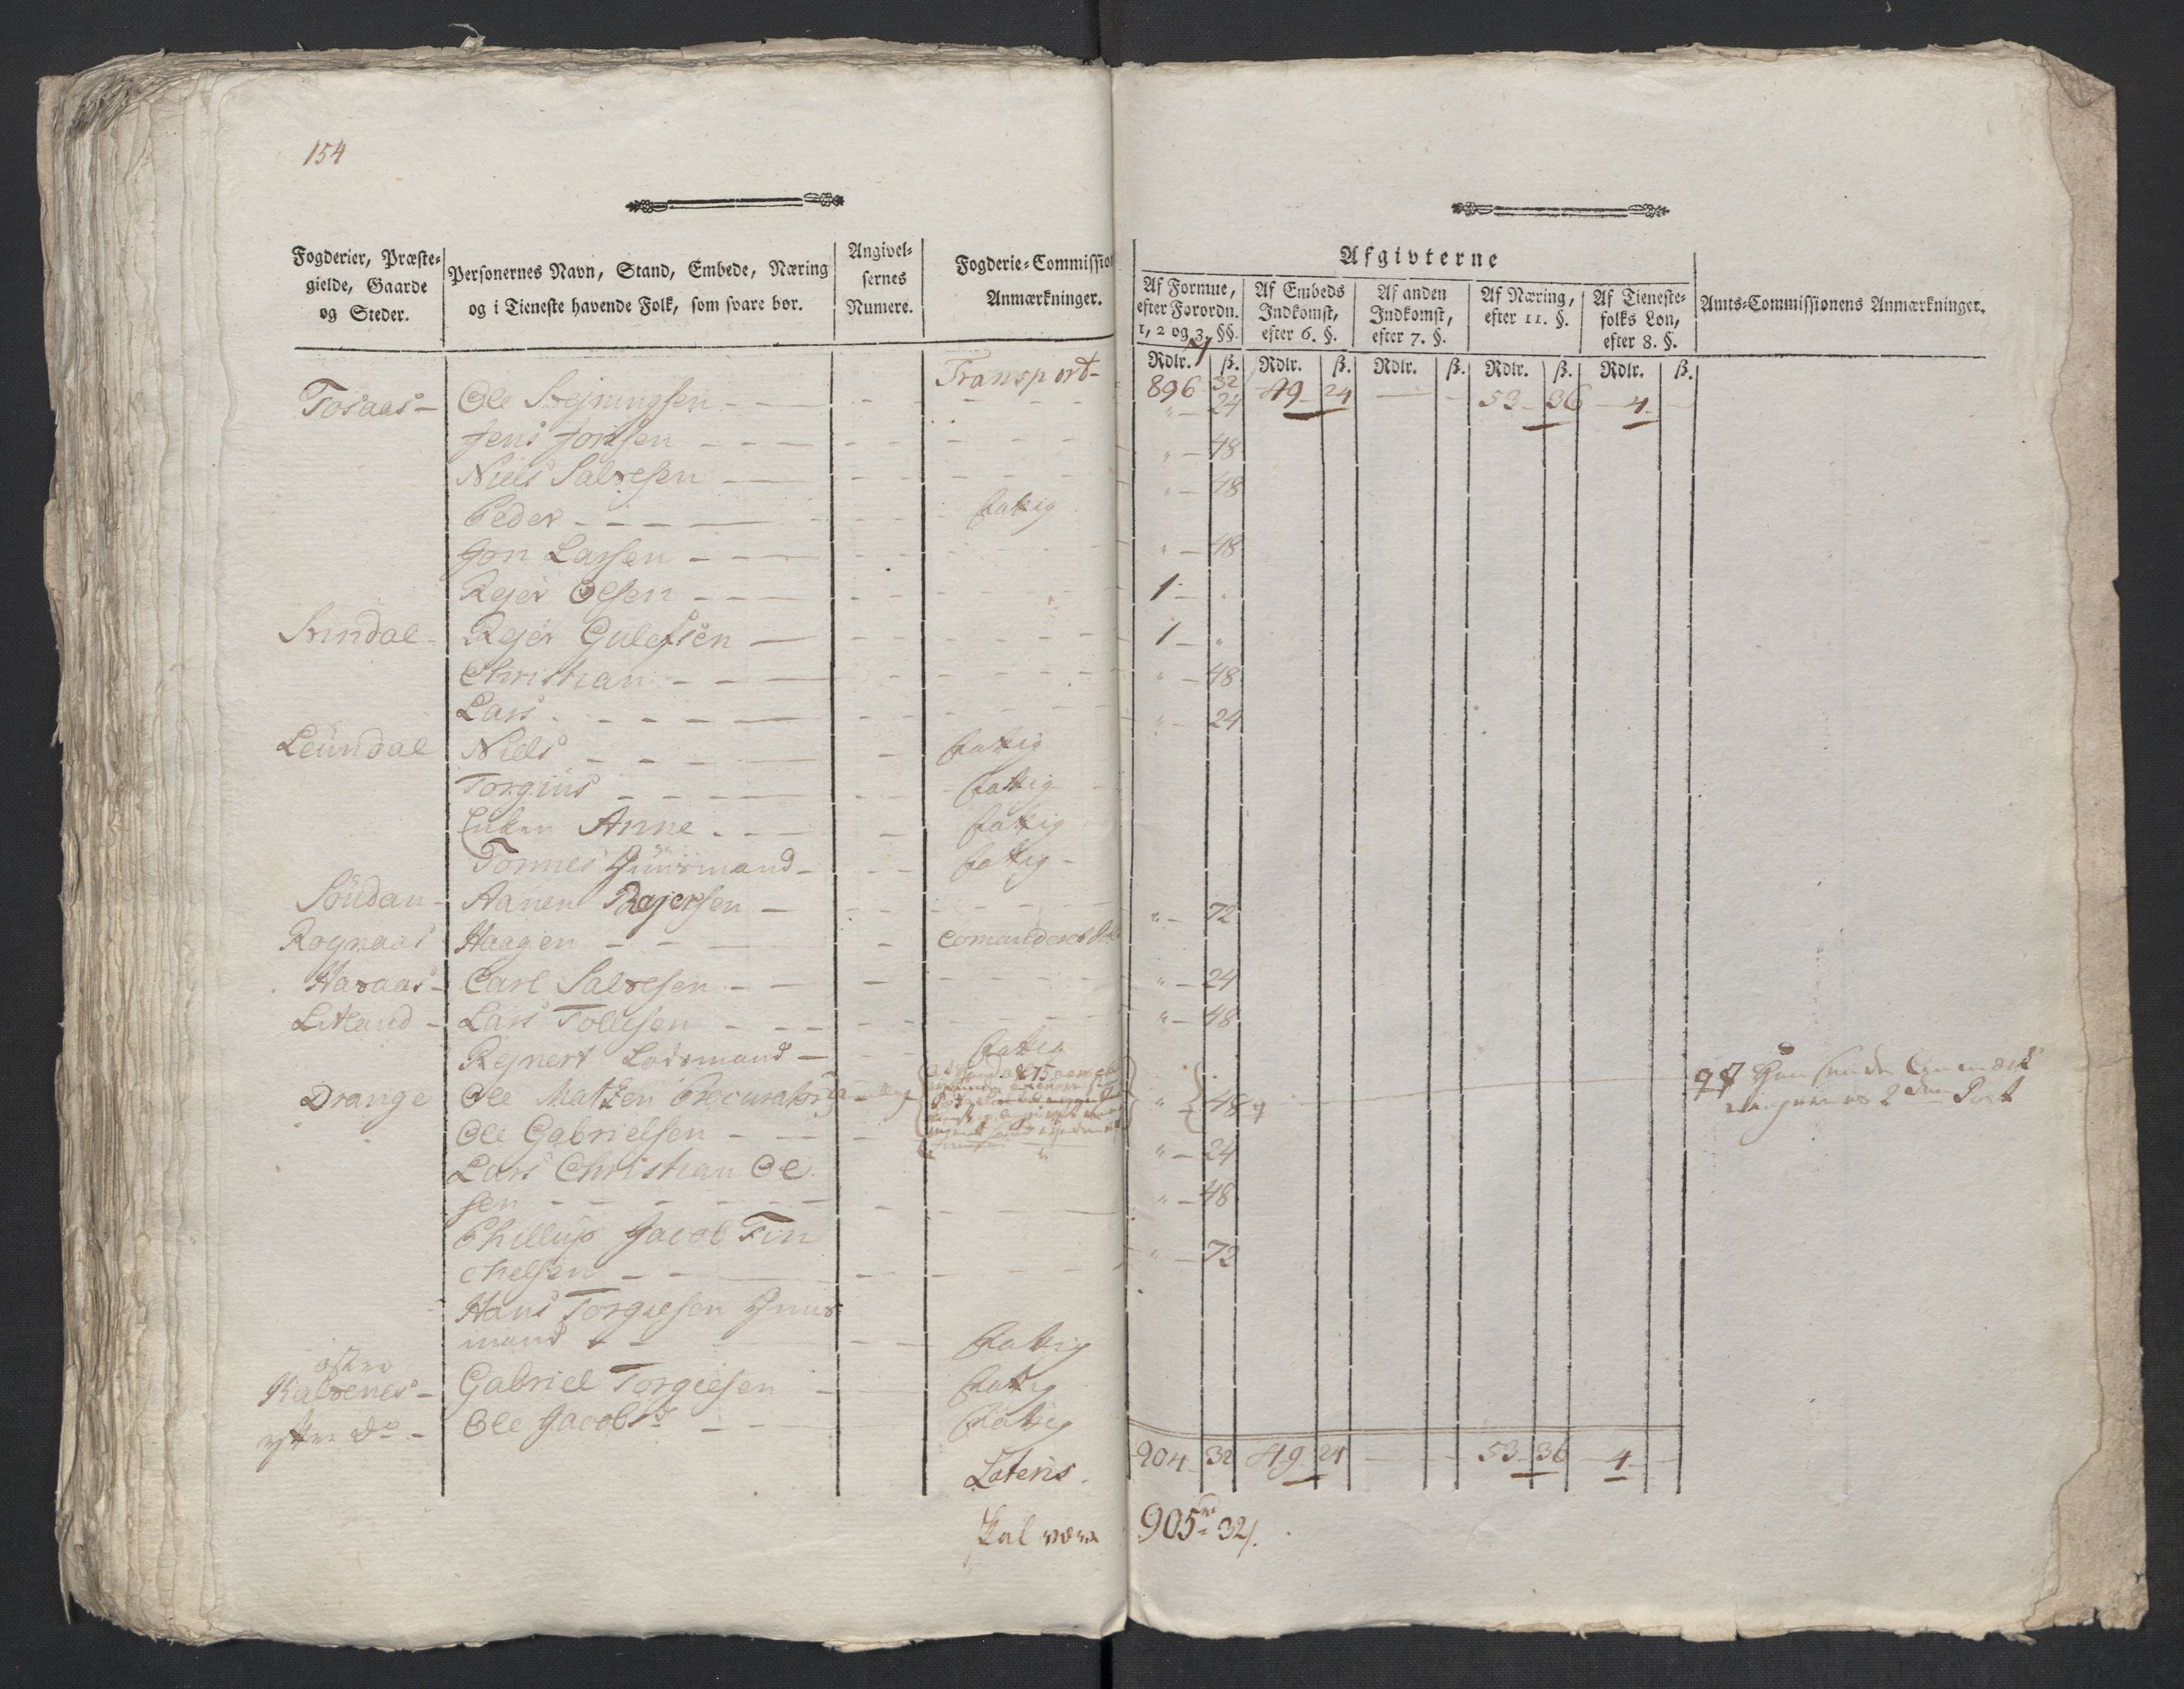 154
Fogderier, Præste-
gielde, Gaarde
og Steder.
Personernes Navn, Stand, Embede, Næring
og i Tieneste havende Folk, som svare bør.
Angivel-
sernes
Numere.
Fogderie-Commissio
Anmærkninger.
Afgivterne
Af Formue,
efter Forordn.
1, 2 og 3. §§.
Af Embeds
Indkomst,
efter 6. §.
Af anden
Indkomst,
efter 7. §.
Af Næring,
efter 11. §.
Af Tieneste-
folks Løn,
efter 8. §.
Amts-Commissionens Anmærkninger.
Rdlr. ß. Rdlr. ß. Rdlr. ß. Rdlr. ß. Rdlr. ß.
Transport - 896 32 49 24 - - 53 36 - 4 -
Tosaas - Ole Stejningsen - - " - 24
Jens Jonsen - - - " - 48
Niels Salvesen - - " - 48
Peder - - - - fattig
Jon Larsen - - - " - 48
Rejer Olsen - - - 1 - "
Stundal - Rejer Gulefsen - 1 - "
Christian - - - " - 48
Lars - - - - " - 24
Leündal Niels - - - - fattig
Torgius - - - - fattig
Enken Anne - - - fattig
Tønnes Huusmand - fattig -
Söudan - Aanen Rejersen - " - 72
Rognaas Haagen - - - Comanderet
Haraas - Carl Salvesen - - " - 24
Litland - Lars Tollefsen - - - " - 48
Rejnert Lodsmand - fattig
Drange Ole Matzen Procurator " - 48
Ole Gabrielsen - - - " - 24
Lars Christian Ol
sen - - - - - " - 48
Phillip Jacob Fin
chelsen - - - " - 72
Hans Torgiesen Huus
mand - - fattig
østre
Kalvenes - Gabriel Torgiesen - fattig
yttre do - Ole Jacobsd - - fattig
Lateris. 904 32 49 24 - - 53 36 - 4 -
skal være 905 rd 32 ß.